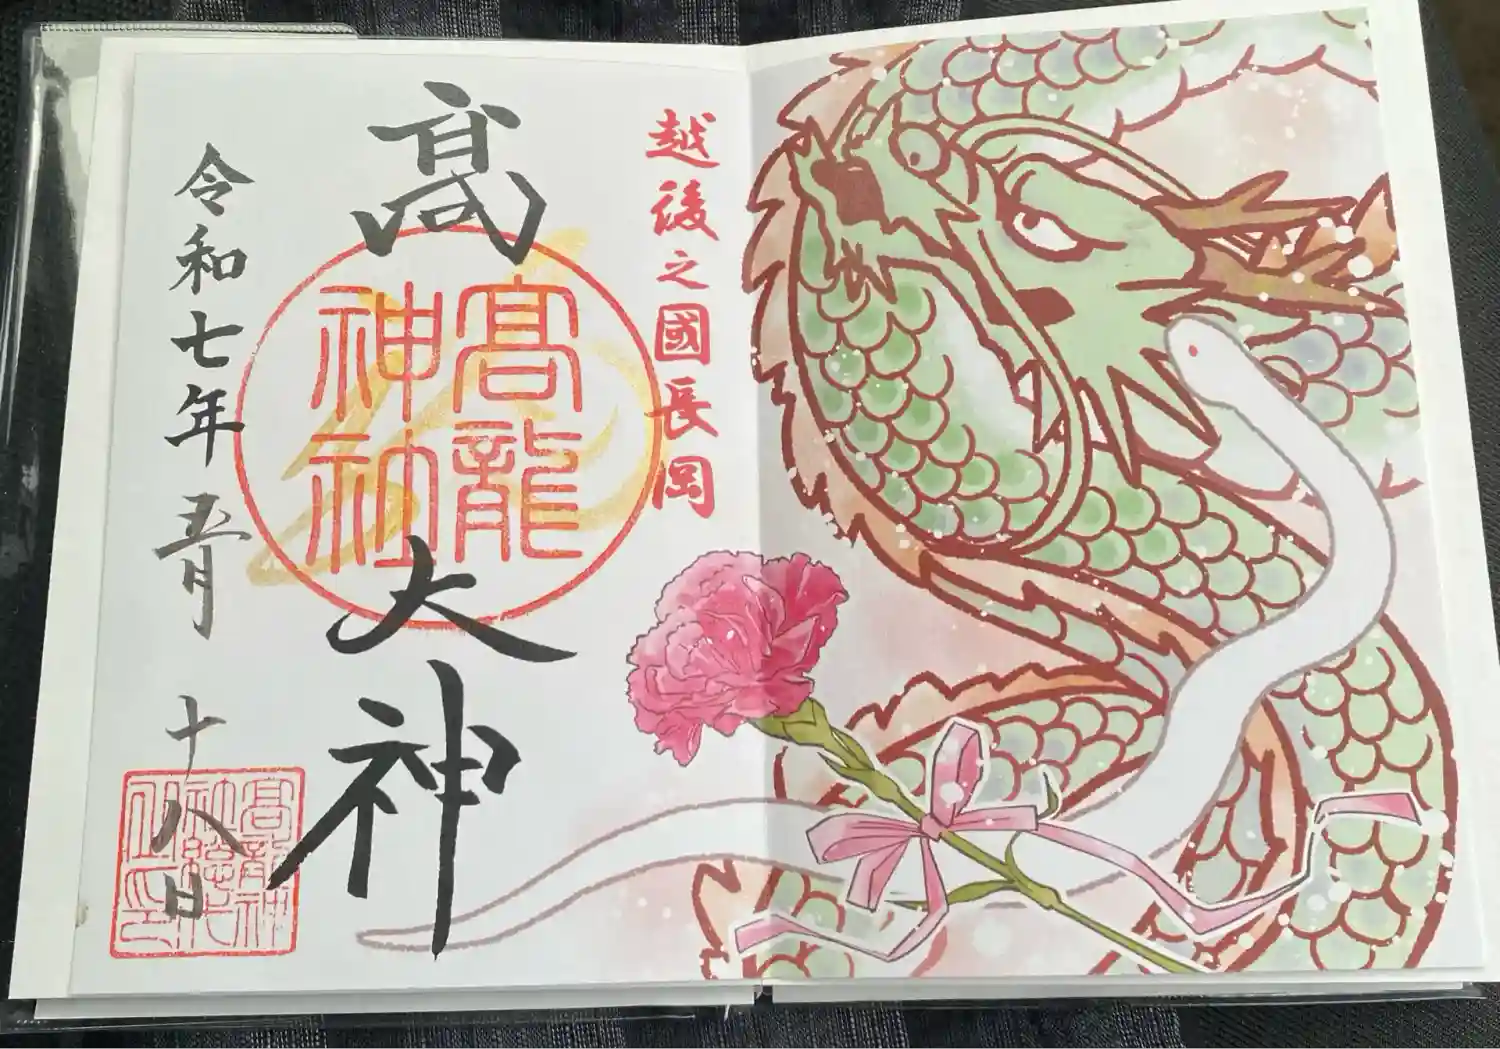 越後之國長岡
髙
大神
髙龍
神社
令和七年 五月 十八日
髙龍神
社総代
之印